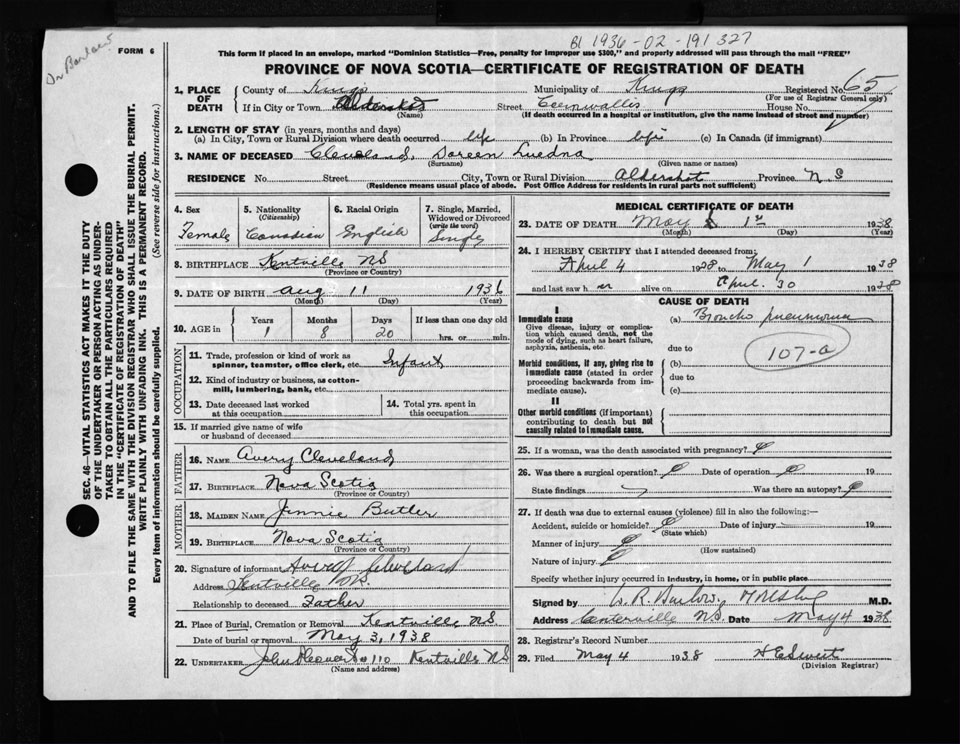 Dr Barlow?
FORM 6
BI 1936-02-191327
This form if placed in an envelope, marked "Dominion Statistics—Free, penalty for improper use $300," and properly addressed will pass through the mail "FREE"
PROVINCE OF NOVA SCOTIA—CERTIFICATE OF REGISTRATION OF DEATH
SEC. 46—VITAL STATISTICS ACT MAKES IT THE DUTY
OF THE UNDERTAKER OR PERSON ACTING AS UNDER-
TAKER TO OBTAIN ALL THE PARTICULARS REQUIRED
IN THE "CERTIFICATE OF REGISTRATION OF DEATH"
AND TO FILE THE SAME WITH THE DIVISION REGISTRAR WHO SHALL ISSUE THE BURIAL PERMIT.
WRITE PLAINLY WITH UNFADING INK. THIS IS A PERMANENT RECORD.
Every item of information should be carefully supplied. (See reverse side for instructions.)
1. PLACE OF DEATH
County of Kings Municipality of Kings Registered No. 65
(For use of Registrar General only)
If in City or Town Aldershot Street Cornwallis House No.
(Name) (If death occurred in a hospital or institution, give the name instead of street and number)
2. LENGTH OF STAY (in years, months and days)
(a) In City, Town or Rural Division where death occurred life (b) In Province life (c) In Canada (if immigrant)
3. NAME OF DECEASED Cleveland, Doreen Luedna
(Surname) (Given name or names)
RESIDENCE No. Street City, Town or Rural Division Aldershot Province N.S
(Residence means usual place of abode. Post Office Address for residents in rural parts not sufficient)
4. Sex Female
5. Nationality (Citizenship) Canadian
6. Racial Origin English
7. Single, Married, Widowed or Divorced (write the word) Single
8. BIRTHPLACE Kentville NS
(Province or Country)
9. DATE OF BIRTH Aug 11 1936
(Month) (Day) (Year)
10. AGE in Years 1 Months 8 Days 20 If less than one day old hrs. or min.
OCCUPATION
11. Trade, profession or kind of work as spinner, teamster, office clerk, etc. Infant
12. Kind of industry or business, as cotton-mill, lumbering, bank, etc.
13. Date deceased last worked at this occupation
14. Total yrs. spent in this occupation
15. If married give name of wife or husband of deceased
FATHER
16. NAME Avery Cleveland
17. BIRTHPLACE Nova Scotia
(Province or Country)
MOTHER
18. MAIDEN NAME Jennie Butler
19. BIRTHPLACE Nova Scotia
(Province or Country)
20. Signature of informant Avery Cleveland
Address Kentville NS.
Relationship to deceased Father
21. Place of Burial, Cremation or Removal Kentville NS
Date of burial or removal May 3, 1938
22. UNDERTAKER John 110 Kentville NS
(Name and address)
MEDICAL CERTIFICATE OF DEATH
23. DATE OF DEATH May 1st 1938
(Month) (Day) (Year)
24. I HEREBY CERTIFY that I attended deceased from:
April 4 1938 to May 1 1938
and last saw her alive on April 30 1938
CAUSE OF DEATH
I
Immediate cause
Give disease, injury or complication which caused death, not the mode of dying, such as heart failure, asphyxia, asthenia, etc.
(a) Broncho pneumonia
due to
107-a
Morbid conditions, if any, giving rise to immediate cause (stated in order proceeding backwards from immediate cause).
(b)
due to
(c)
II
Other morbid conditions (if important) contributing to death but not causally related to immediate cause.
25. If a woman, was the death associated with pregnancy?
26. Was there a surgical operation? Date of operation 19
State findings Was there an autopsy?
27. If death was due to external causes (violence) fill in also the following:—
Accident, suicide or homicide? Date of injury 19
(State which)
Manner of injury
(How sustained)
Nature of injury
Specify whether injury occurred in industry, in home, or in public place
Signed by M.D.
Address Centerville N.S. Date May 4 1938
28. Registrar's Record Number
29. Filed May 4 1938 H E Sweet
(Division Registrar)